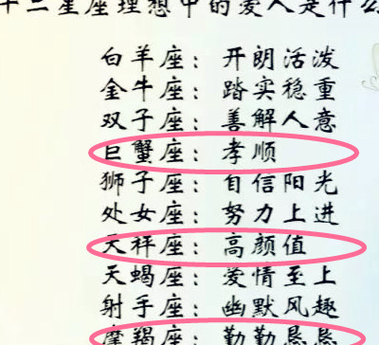 十二星座理想中的爱人是什么
白羊座：开朗活泼
金牛座：踏实稳重
双子座：善解人意
巨蟹座：孝顺
狮子座：自信阳光
处女座：努力上进
天秤座：高颜值
天蝎座：爱情至上
射手座：幽默风趣
摩羯座：勤勤恳恳